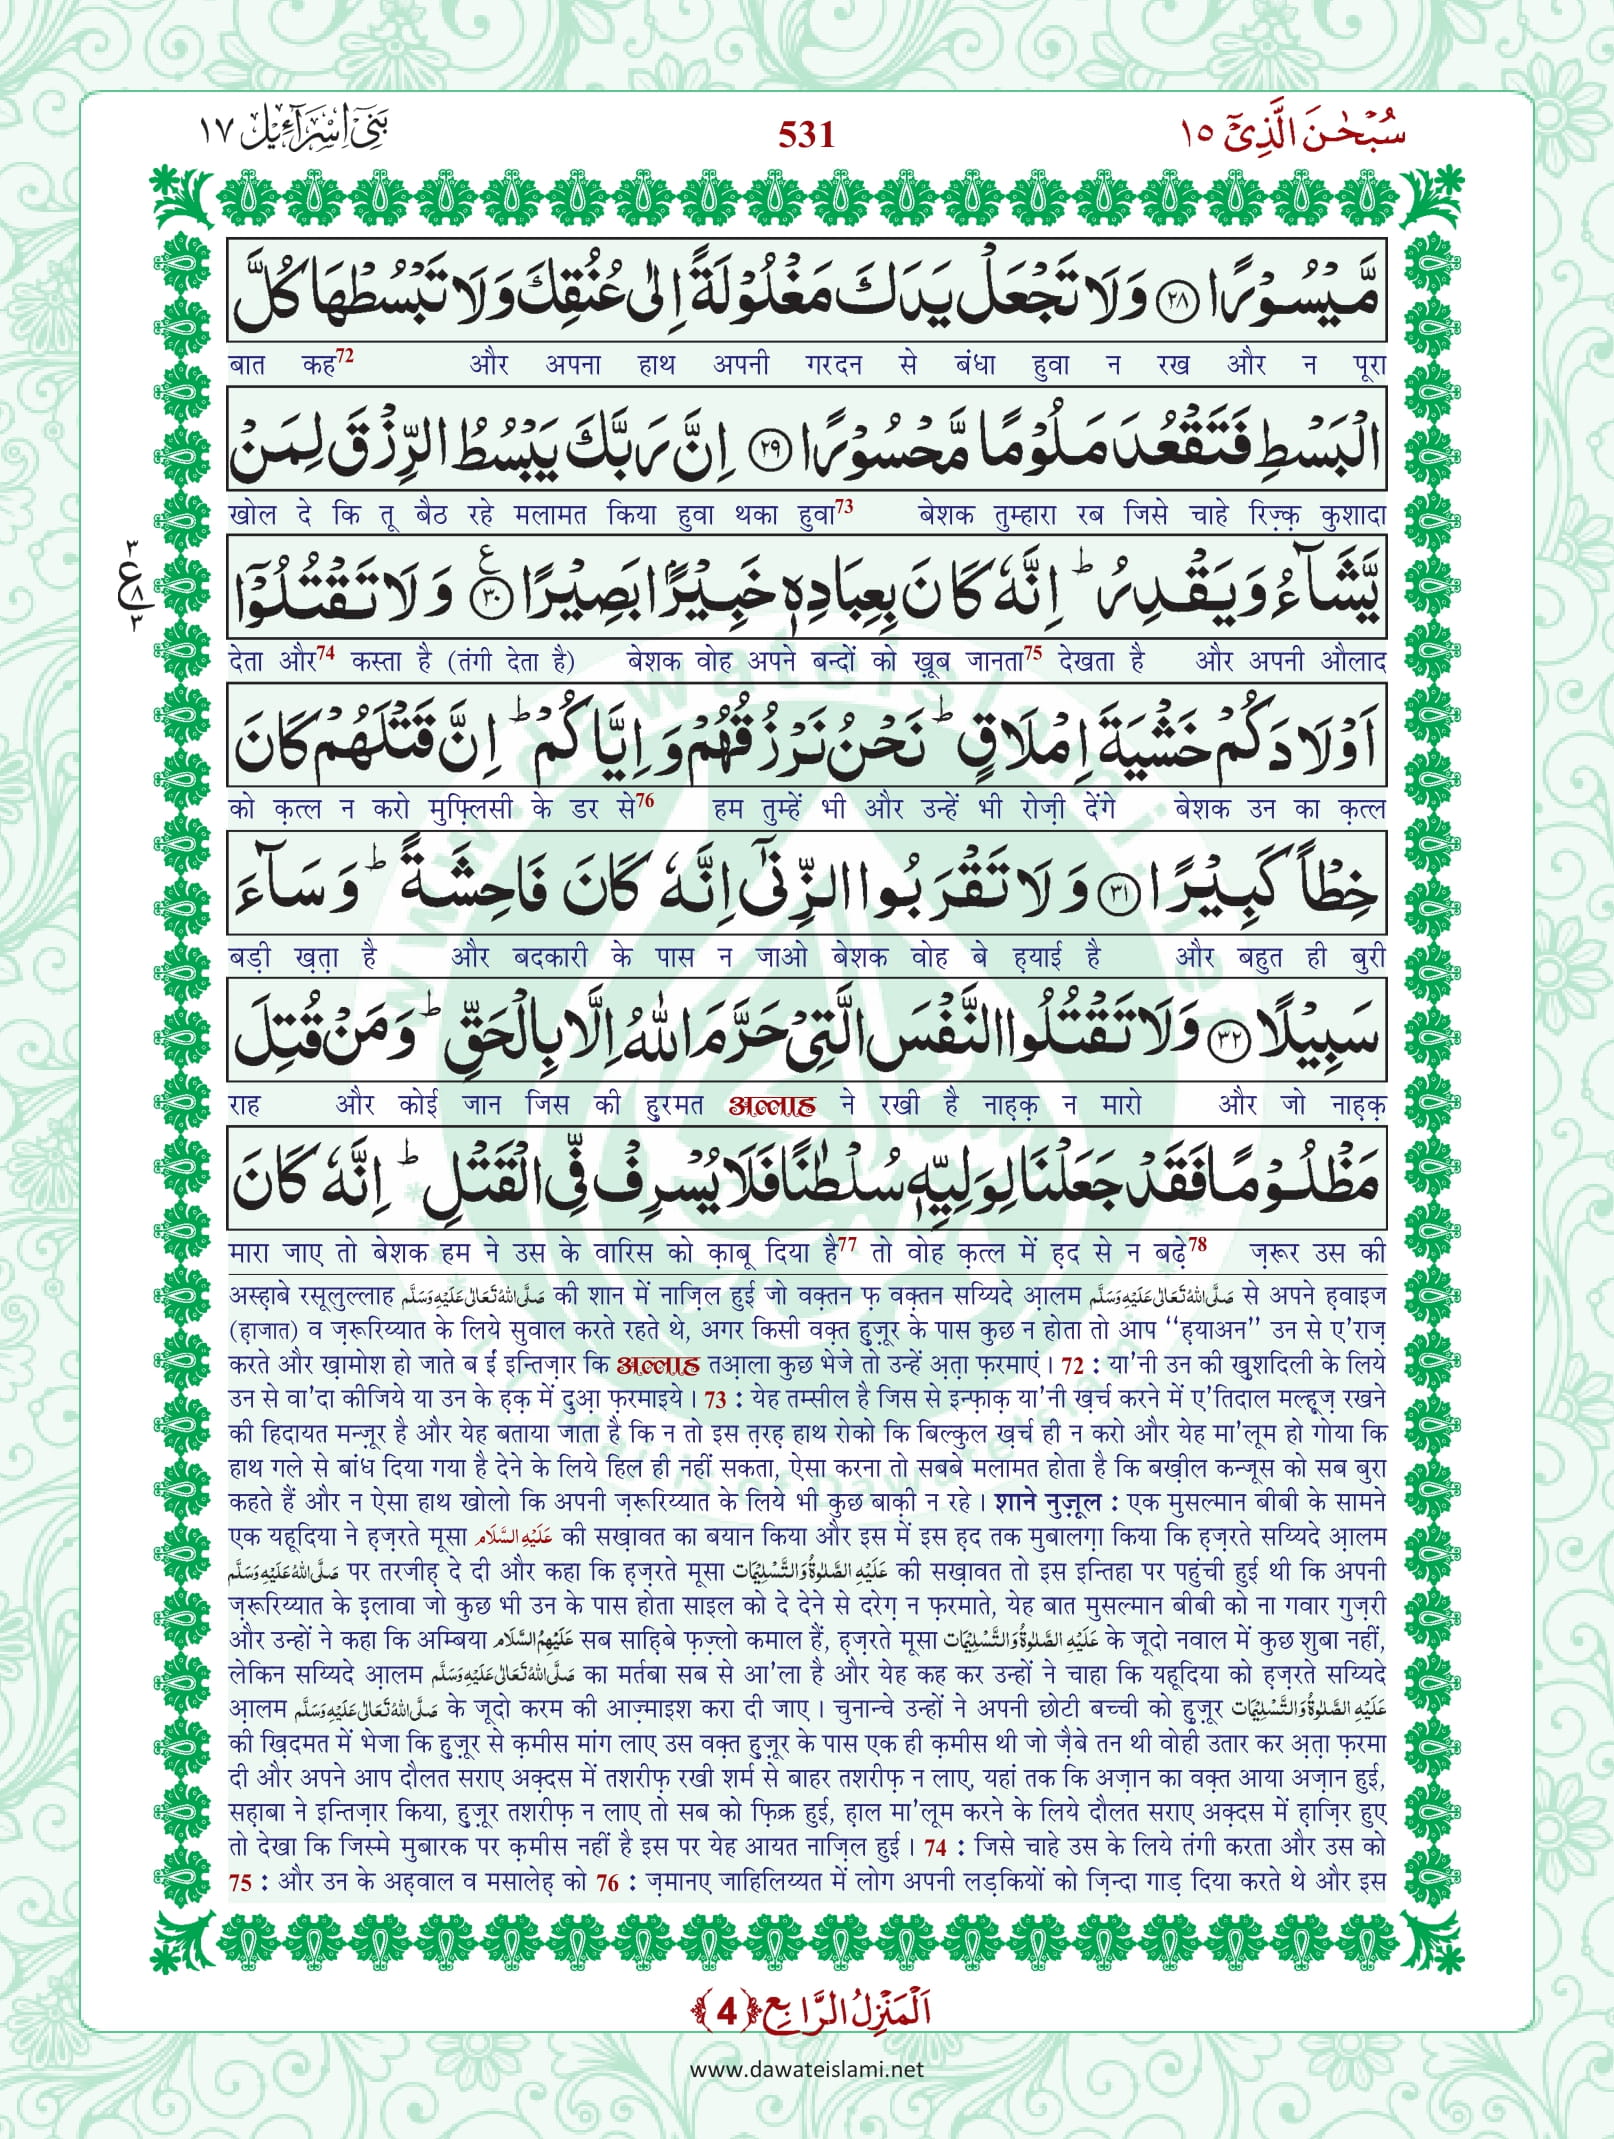 سُبْحٰنَ الَّذِیْۤ ١٥
531
بَنِیْۤ اِسْرَآءِیْل ١٧
مَّیْسُوْرًا ﴿٢٨﴾ وَ لَا تَجْعَلْ یَدَكَ مَغْلُوْلَةً اِلٰى عُنُقِكَ وَ لَا تَبْسُطْهَا كُلَّ
बात कह72 और अपना हाथ अपनी गरदन से बंधा हुवा न रख और न पूरा
الْبَسْطِ فَتَقْعُدَ مَلُوْمًا مَّحْسُوْرًا ﴿٢٩﴾ اِنَّ رَبَّكَ یَبْسُطُ الرِّزْقَ لِمَنْ
खोल दे कि तू बैठ रहे मलामत किया हुवा थका हुवा73 बेशक तुम्हारा रब जिसे चाहे रिज़्क़ कुशादा
یَّشَآءُ وَ یَقْدِرُ ؕ اِنَّهٗ كَانَ بِعِبَادِهٖ خَبِیْرًۢا بَصِیْرًا ﴿٣٠﴾ ع وَ لَا تَقْتُلُوْۤا
٣
ع
٨
٣
देता और74 कस्ता है (तंगी देता है) बेशक वोह अपने बन्दों को ख़ूब जानता75 देखता है और अपनी औलाद
اَوْلَادَكُمْ خَشْیَةَ اِمْلَاقٍ ؕ نَحْنُ نَرْزُقُهُمْ وَ اِیَّاكُمْ ؕ اِنَّ قَتْلَهُمْ كَانَ
को क़त्ल न करो मुफ़्लिसी के डर से76 हम तुम्हें भी और उन्हें भी रोज़ी देंगे बेशक उन का क़त्ल
خِطْاً كَبِیْرًا ﴿٣١﴾ وَ لَا تَقْرَبُوا الزِّنٰۤى اِنَّهٗ كَانَ فَاحِشَةً ؕ وَ سَآءَ
बड़ी ख़त़ा है और बदकारी के पास न जाओ बेशक वोह बे ह़याई है और बहुत ही बुरी
سَبِیْلًا ﴿٣٢﴾ وَ لَا تَقْتُلُوا النَّفْسَ الَّتِیْ حَرَّمَ اللّٰهُ اِلَّا بِالْحَقِّ ؕ وَ مَنْ قُتِلَ
राह और कोई जान जिस की ह़ुरमत अल्लाह ने रखी है नाह़क़ न मारो और जो नाह़क़
مَظْلُوْمًا فَقَدْ جَعَلْنَا لِوَلِیِّهٖ سُلْطٰنًا فَلَا یُسْرِفْ فِّی الْقَتْلِ ؕ اِنَّهٗ كَانَ
मारा जाए तो बेशक हम ने उस के वारिस को क़ाबू दिया है77 तो वोह क़त्ल में ह़द से न बढ़े78 ज़रूर उस की
अस्ह़ाबे रसूलुल्लाह صَلَّى اللّٰهُ تَعَالٰى عَلَيْهِ وَسَلَّم की शान में नाज़िल हुई जो वक़्तन फ़ वक़्तन सय्यिदे आ़लम صَلَّى اللّٰهُ تَعَالٰى عَلَيْهِ وَسَلَّم से अपने ह़वाइज
(ह़ाजात) व ज़रूरिय्यात के लिये सुवाल करते रहते थे, अगर किसी वक़्त ह़ुज़ूर के पास कुछ न होता तो आप ‘‘ह़याअन’’ उन से ए'राज़
करते और ख़ामोश हो जाते ब ईं इन्तिज़ार कि अल्लाह तआ़ला कुछ भेजे तो उन्हें अ़त़ा फ़रमाएं। 72 : या'नी उन की ख़ुशदिली के लिये
उन से वा'दा कीजिये या उन के ह़क़ में दुआ़ फ़रमाइये। 73 : येह तम्सील है जिस से इन्फ़ाक़ या'नी ख़र्च करने में ए'तिदाल मल्ह़ूज़ रखने
की हिदायत मन्ज़ूर है और येह बताया जाता है कि न तो इस त़रह़ हाथ रोको कि बिल्कुल ख़र्च ही न करो और येह मा'लूम हो गोया कि
हाथ गले से बांध दिया गया है देने के लिये हिल ही नहीं सकता, ऐसा करना तो सबबे मलामत होता है कि बख़ील कन्जूस को सब बुरा
कहते हैं और न ऐसा हाथ खोलो कि अपनी ज़रूरिय्यात के लिये भी कुछ बाक़ी न रहे। शाने नुज़ूल : एक मुसल्मान बीबी के सामने
एक यहूदिया ने ह़ज़रते मूसा عَلَيْهِ السَّلَام की सख़ावत का बयान किया और इस में इस ह़द तक मुबालग़ा किया कि ह़ज़रते सय्यिदे आ़लम
صَلَّى اللّٰهُ عَلَيْهِ وَسَلَّم पर तरजीह़ दे दी और कहा कि ह़ज़रते मूसा عَلَيْهِ الصَّلٰوةُ وَالتَّسْلِيْمَات की सख़ावत तो इस इन्तिहा पर पहुंची हुई थी कि अपनी
ज़रूरिय्यात के इलावा जो कुछ भी उन के पास होता साइल को दे देने से दरेग़ न फ़रमाते, येह बात मुसल्मान बीबी को ना गवार गुज़री
और उन्हों ने कहा कि अम्बिया عَلَيْهِمُ السَّلَام सब साह़िबे फ़ज़्लो कमाल हैं, ह़ज़रते मूसा عَلَيْهِ الصَّلٰوةُ وَالتَّسْلِيْمَات के जूदो नवाल में कुछ शुबा नहीं,
लेकिन सय्यिदे आ़लम صَلَّى اللّٰهُ تَعَالٰى عَلَيْهِ وَسَلَّم का मर्तबा सब से आ'ला है और येह कह कर उन्हों ने चाहा कि यहूदिया को ह़ज़रते सय्यिदे
आ़लम صَلَّى اللّٰهُ تَعَالٰى عَلَيْهِ وَسَلَّم के जूदो करम की आज़्माइश करा दी जाए। चुनान्चे उन्हों ने अपनी छोटी बच्ची को ह़ुज़ूर عَلَيْهِ الصَّلٰوةُ وَالتَّسْلِيْمَات
की ख़िदमत में भेजा कि ह़ुज़ूर से क़मीस मांग लाए उस वक़्त ह़ुज़ूर के पास एक ही क़मीस थी जो ज़ैबे तन थी वोही उतार कर अ़त़ा फ़रमा
दी और अपने आप दौलत सराए अक़्दस में तशरीफ़ रखी शर्म से बाहर तशरीफ़ न लाए, यहां तक कि अज़ान का वक़्त आया अज़ान हुई,
सह़ाबा ने इन्तिज़ार किया, ह़ुज़ूर तशरीफ़ न लाए तो सब को फ़िक्र हुई, ह़ाल मा'लूम करने के लिये दौलत सराए अक़्दस में ह़ाज़िर हुए
तो देखा कि जिस्मे मुबारक पर क़मीस नहीं है इस पर येह आयत नाज़िल हुई। 74 : जिसे चाहे उस के लिये तंगी करता और उस को
75 : और उन के अह़वाल व मसालेह़ को 76 : ज़मानए जाहिलिय्यत में लोग अपनी लड़कियों को ज़िन्दा गाड़ दिया करते थे और इस
اَلْمَنْزِلُ الرَّابِع ﴿4﴾
www.dawateislami.net